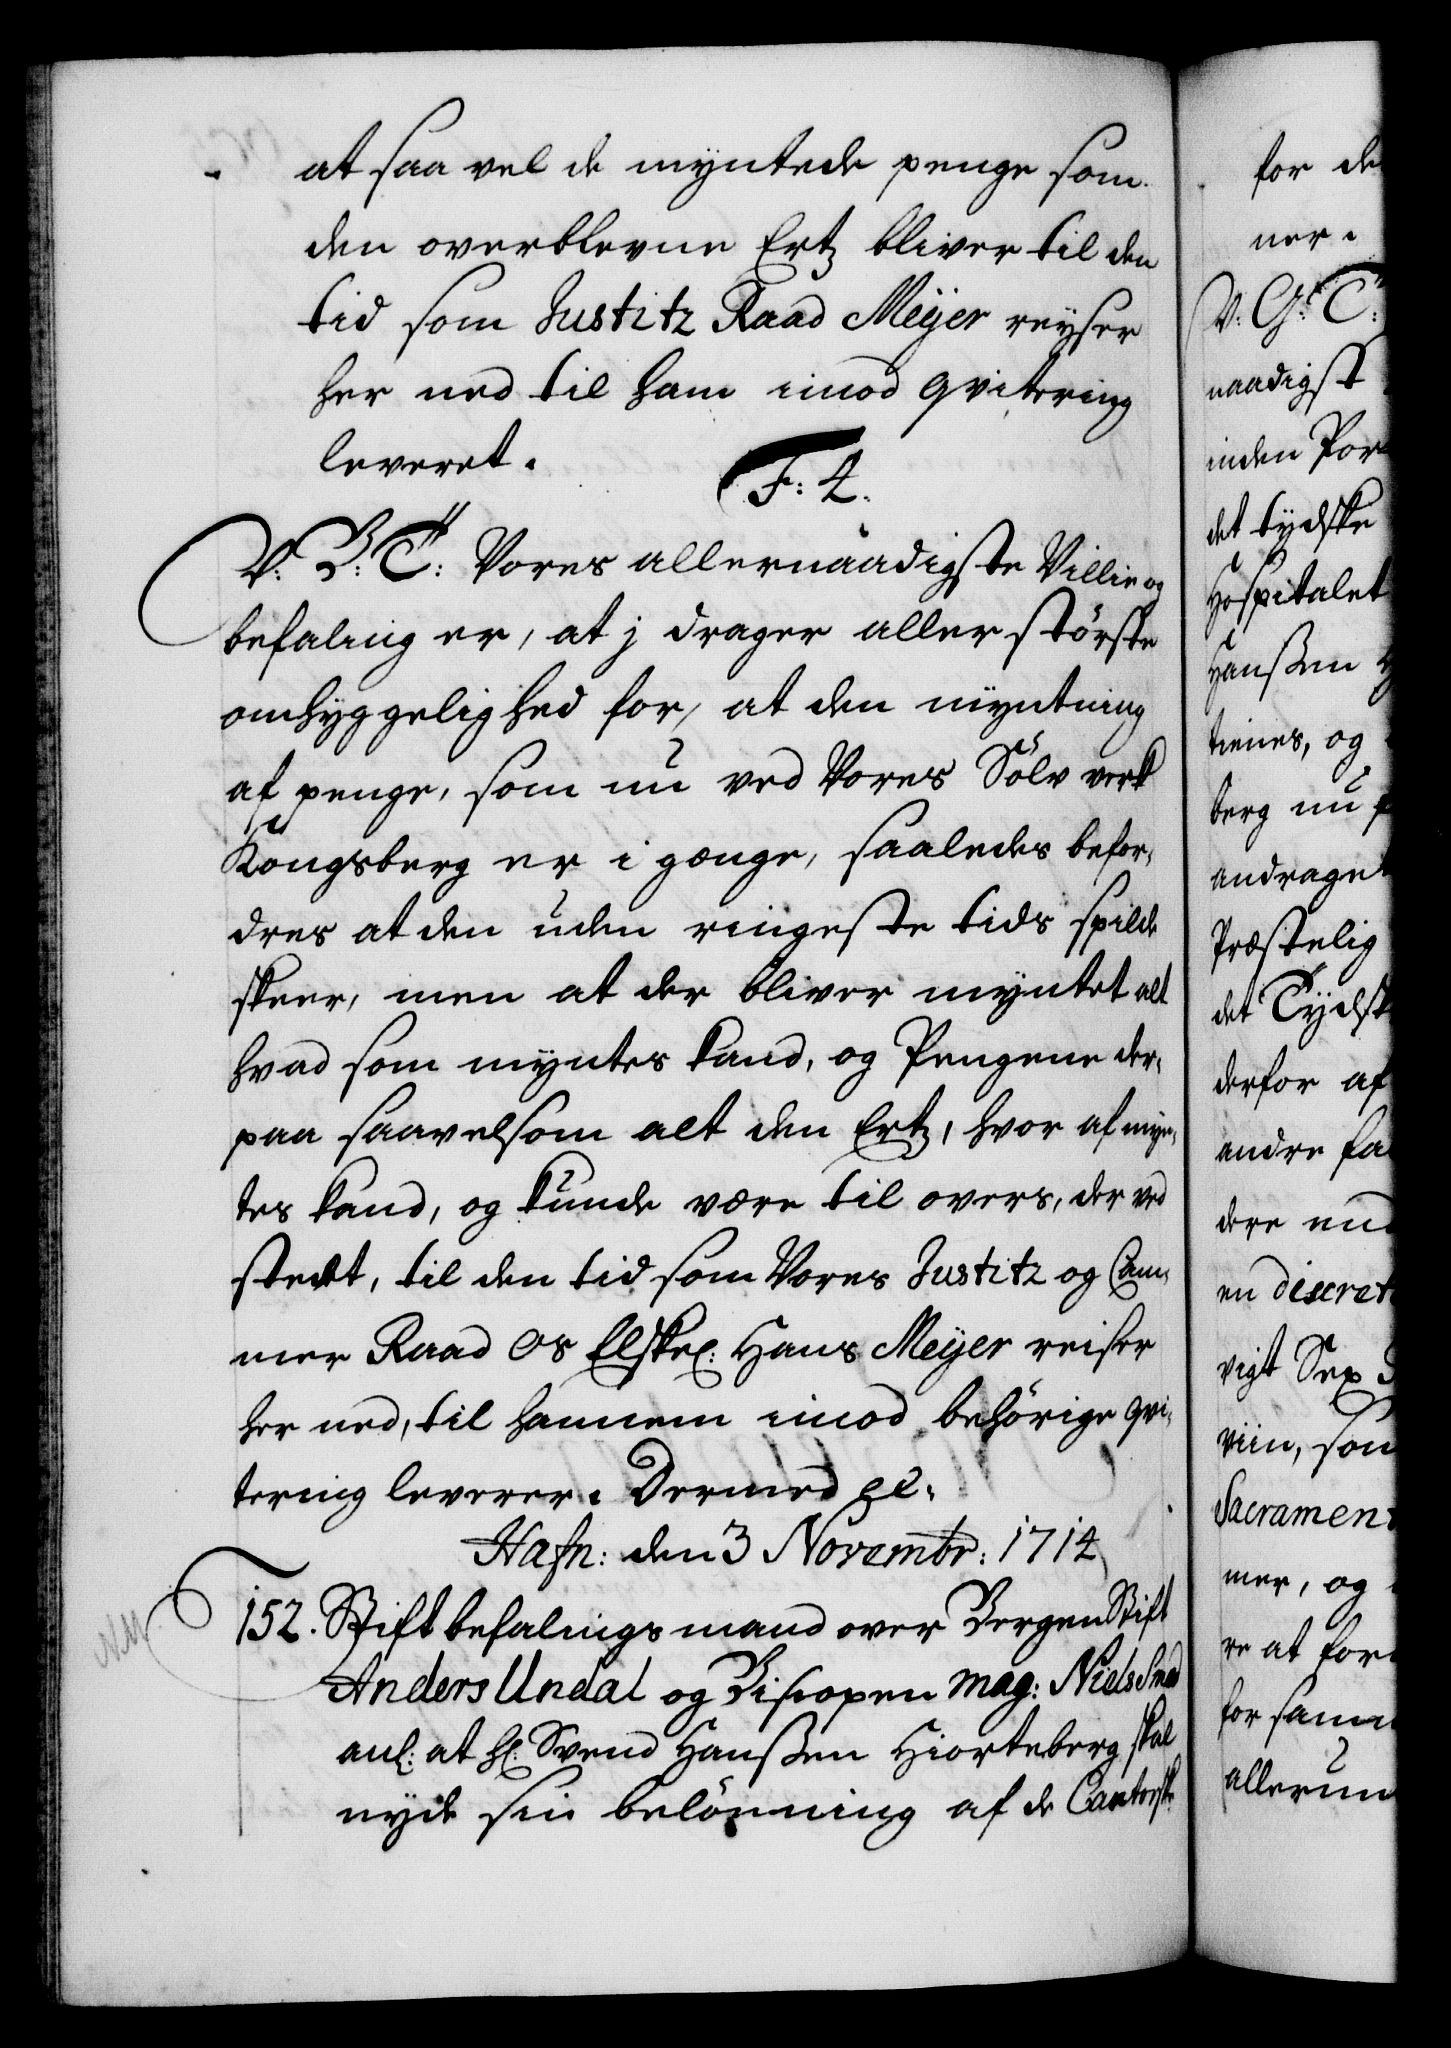 at saa vel de myntede penge som
den overblevne Ertz bliver til den
tid som Justitz Raad Meÿer reyser
her ned til ham imod qvitering
leveret.
F: 4.
V: G: T: Vores allernaadigste Villie og
befaling er, at j drager aller störste
omhyggelighed for, at den myntning
af penge, som nu ved Vores Sölv verk
Kongsberg er i gænge, saaledes befor,
dres at den uden ringeste tids spilde
skeer, men at der bliver myntet alt
hvad som myntes kand, og Pengene der,
paa saavelsom alt den Ertz, hvor af myn,
tes kand, og kunde være til overs, der ved
stedet, til den tid som Vores Justitz og Cam,
mer Raad Os Elskel: Hans Meÿer reiser
her ned, til hannem imod behörige qvi,
tering leverer. Dermed pl.
Hafn: den 3 Novembr: 1714
152. Stiftbefalings mand over Bergen Stift
Anders Undal og Biscopen Mag: Niels Smed
anl: at Hl: Svend Hanßen Hiorteberg skal
nyde sin belönning af de Cantorsk
for de
ner.
V: G: T:
naadigst
inden Por
det tydske
Hospitalet
Hanßen H
tienes, og
berg nu f
andraget
Præstelig
det Tydsk
derfor af
andre fa
dere und
en discret
vigt Sex
viin, som
Sacramen
mer, og
re at for
for samm
allerun